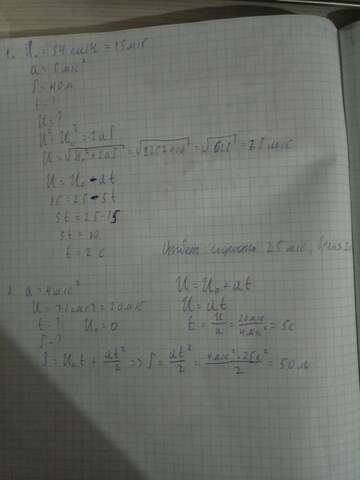 1. U₀ = 54 км/ч = 15 м/с
a = 5 м/с²
S = 40 м
t = ?
U = ?
U² = U₀² - 2aS
U = √U₀² + 2aS = √225 + 400 = √625 = 25 м/с
U = U₀ - at
15 = 25 - 5t
5t = 25 - 15
5t = 10
t = 2 с
Ответ: скорость 25 м/с, время 2
2. a = 4 м/с²
U = 72 км/ч = 20 м/с
t - ? U₀ = 0
S - ?
U = U₀ + at
U = at
t = U/a = 20 м/с / 4 м/с² = 5с
S = U₀t + at²/2 => S = at²/2 = 4 м/с² · 25с²/2 = 50 м